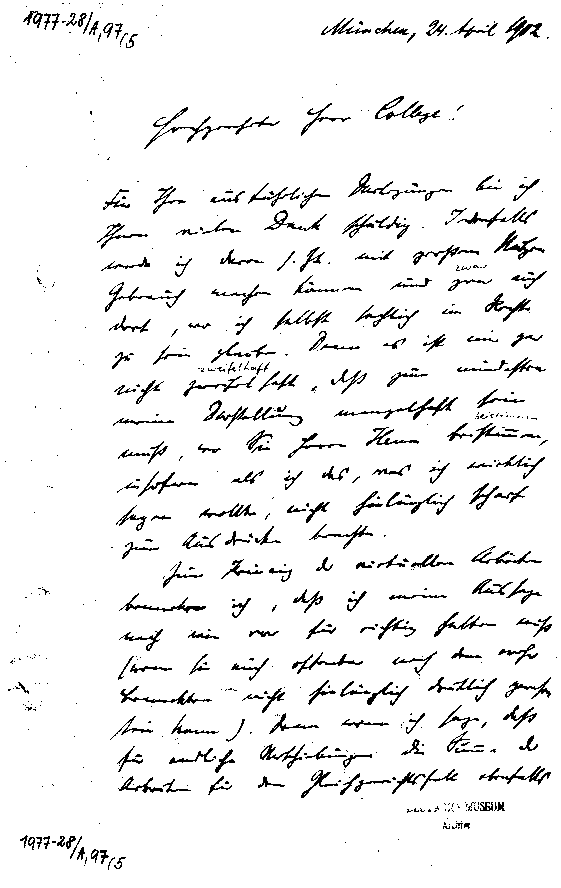 1977-28/A,97/5
München, 24. April 1902.
Hochgeehrter Herr College!
Für Ihre ausführlichen Darlegungen bin ich
Ihnen vielen Dank schuldig. Jedenfalls
werde ich davon s. Zt. mit großem Nutzen
Gebrauch machen können und zwar auch
zwar
dort, wo ich selbst sachlich im Rechte
zu sein glaube. Denn es ist mir gar
zweifelhaft
nicht zweifelhaft, daß zum mindesten
meine Darstellung mangelhaft sein
beistimmen
muß, wo Sie Herrn Heun beistimmen,
insofern als ich das, was ich wirklich
sagen wollte, nicht hinlänglich scharf
zum Ausdrucke brachte.
Zum Prinzip der virtuellen Arbeiten
bemerke ich, daß ich meine Aussage
nach wie vor für richtig halten muß
(wenn sie auch offenbar nach dem vorher
Bemerkten nicht hinlänglich deutlich gewesen
sein kann). Denn wenn ich sage, daß
für endliche Verschiebungen die Summe der
Arbeiten für den Gleichgewichtsfall ebenfalls
MUSEUM
Archiv
1977-28/A,97/5